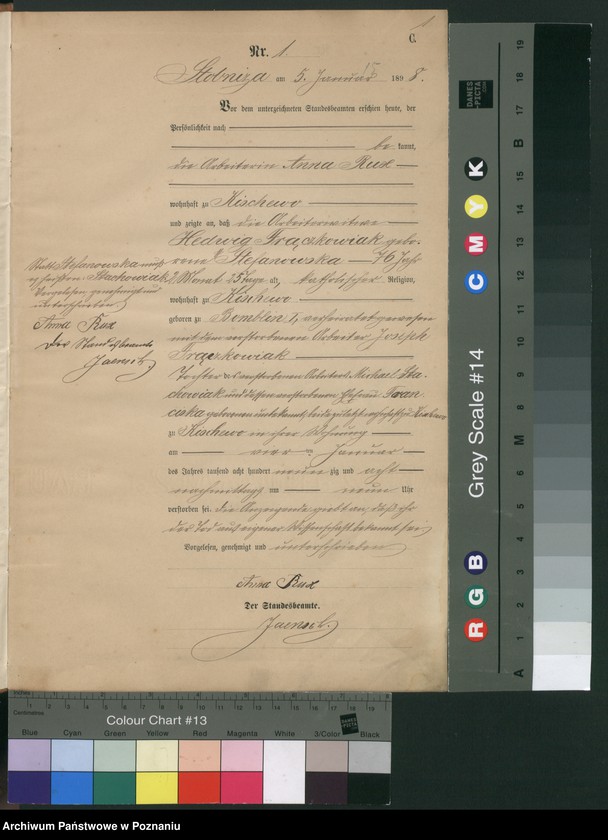 1
C.
Nr. 1.
Stobnica am 5. Januar 1898.
Vor dem unterzeichneten Standesbeamten erschien heute, der
Persönlichkeit nach
be kannt,
die Arbeiterin Anna Rux
wohnhaft zu Kischewo
und zeigte an, daß die Arbeiterwitwe
Hedwig Frackowiak gebo-
rene Stefanowska – 76 Jahr
2 Monat 25 Tage alt, katholischer Religion,
wohnhaft zu Kischewo
geboren zu Bomblin, verheiratet gewesen
mit dem verstorbenen Arbeiter Joseph
Frackowiak
Tochter des verstorbenen Arbeiters Michael Sta-
chowiak und dessen verstorbenen Ehefrau Fran
ciska geborenen unbekannt, beide zuletzt wohnhaft in Kischewo
zu Kischewo in ihrer Wohnung
am vier ten Januar
des Jahres tausend acht hundert neun zig und acht
nachmittags um neun Uhr
verstorben sei. Die Anzeigende giebt an, daß ihr
der Tod aus eigener Wissenschaft bekannt sei
Vorgelesen, genehmigt und unterschrieben
Anna Rux
Der Standesbeamte.
Jaensch.
Statt Stefanowska muß
es heißen Stachowiak
Vorgelesen genehmigt und
unterschrieben
Anna Rux
Der Standesbeamte
Jaensch.
DANES-PICTA.COM
Grey Scale #14
A 1 2 3 4 5 6 M 7 8 9 10 11 12 13 14 15 B 16 17 18 19
R G B
C M Y K
Centimetres
Colour Chart #13
DANES PICTA
Blue Cyan Green Yellow Red Magenta White 3/Color Black
Archiwum Państwowe w Poznaniu